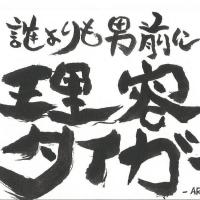 誰よりも男前に
理容
タイガー
- AR